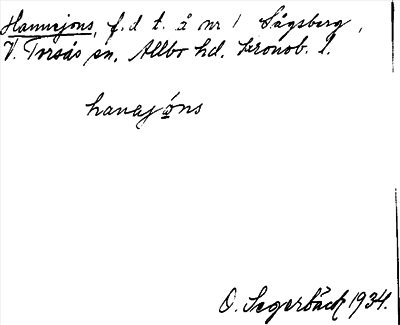 Hannejons, f.d t. å nr 1 Sågsberg,
V. Torsås sn, Allbo hd, Kronob. l.
hanejóns
O. Segerbäck 1934.